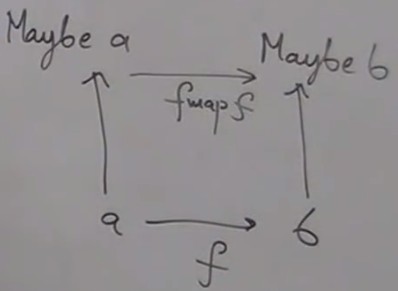 Maybe a
Maybe b
fmap f
a
b
f